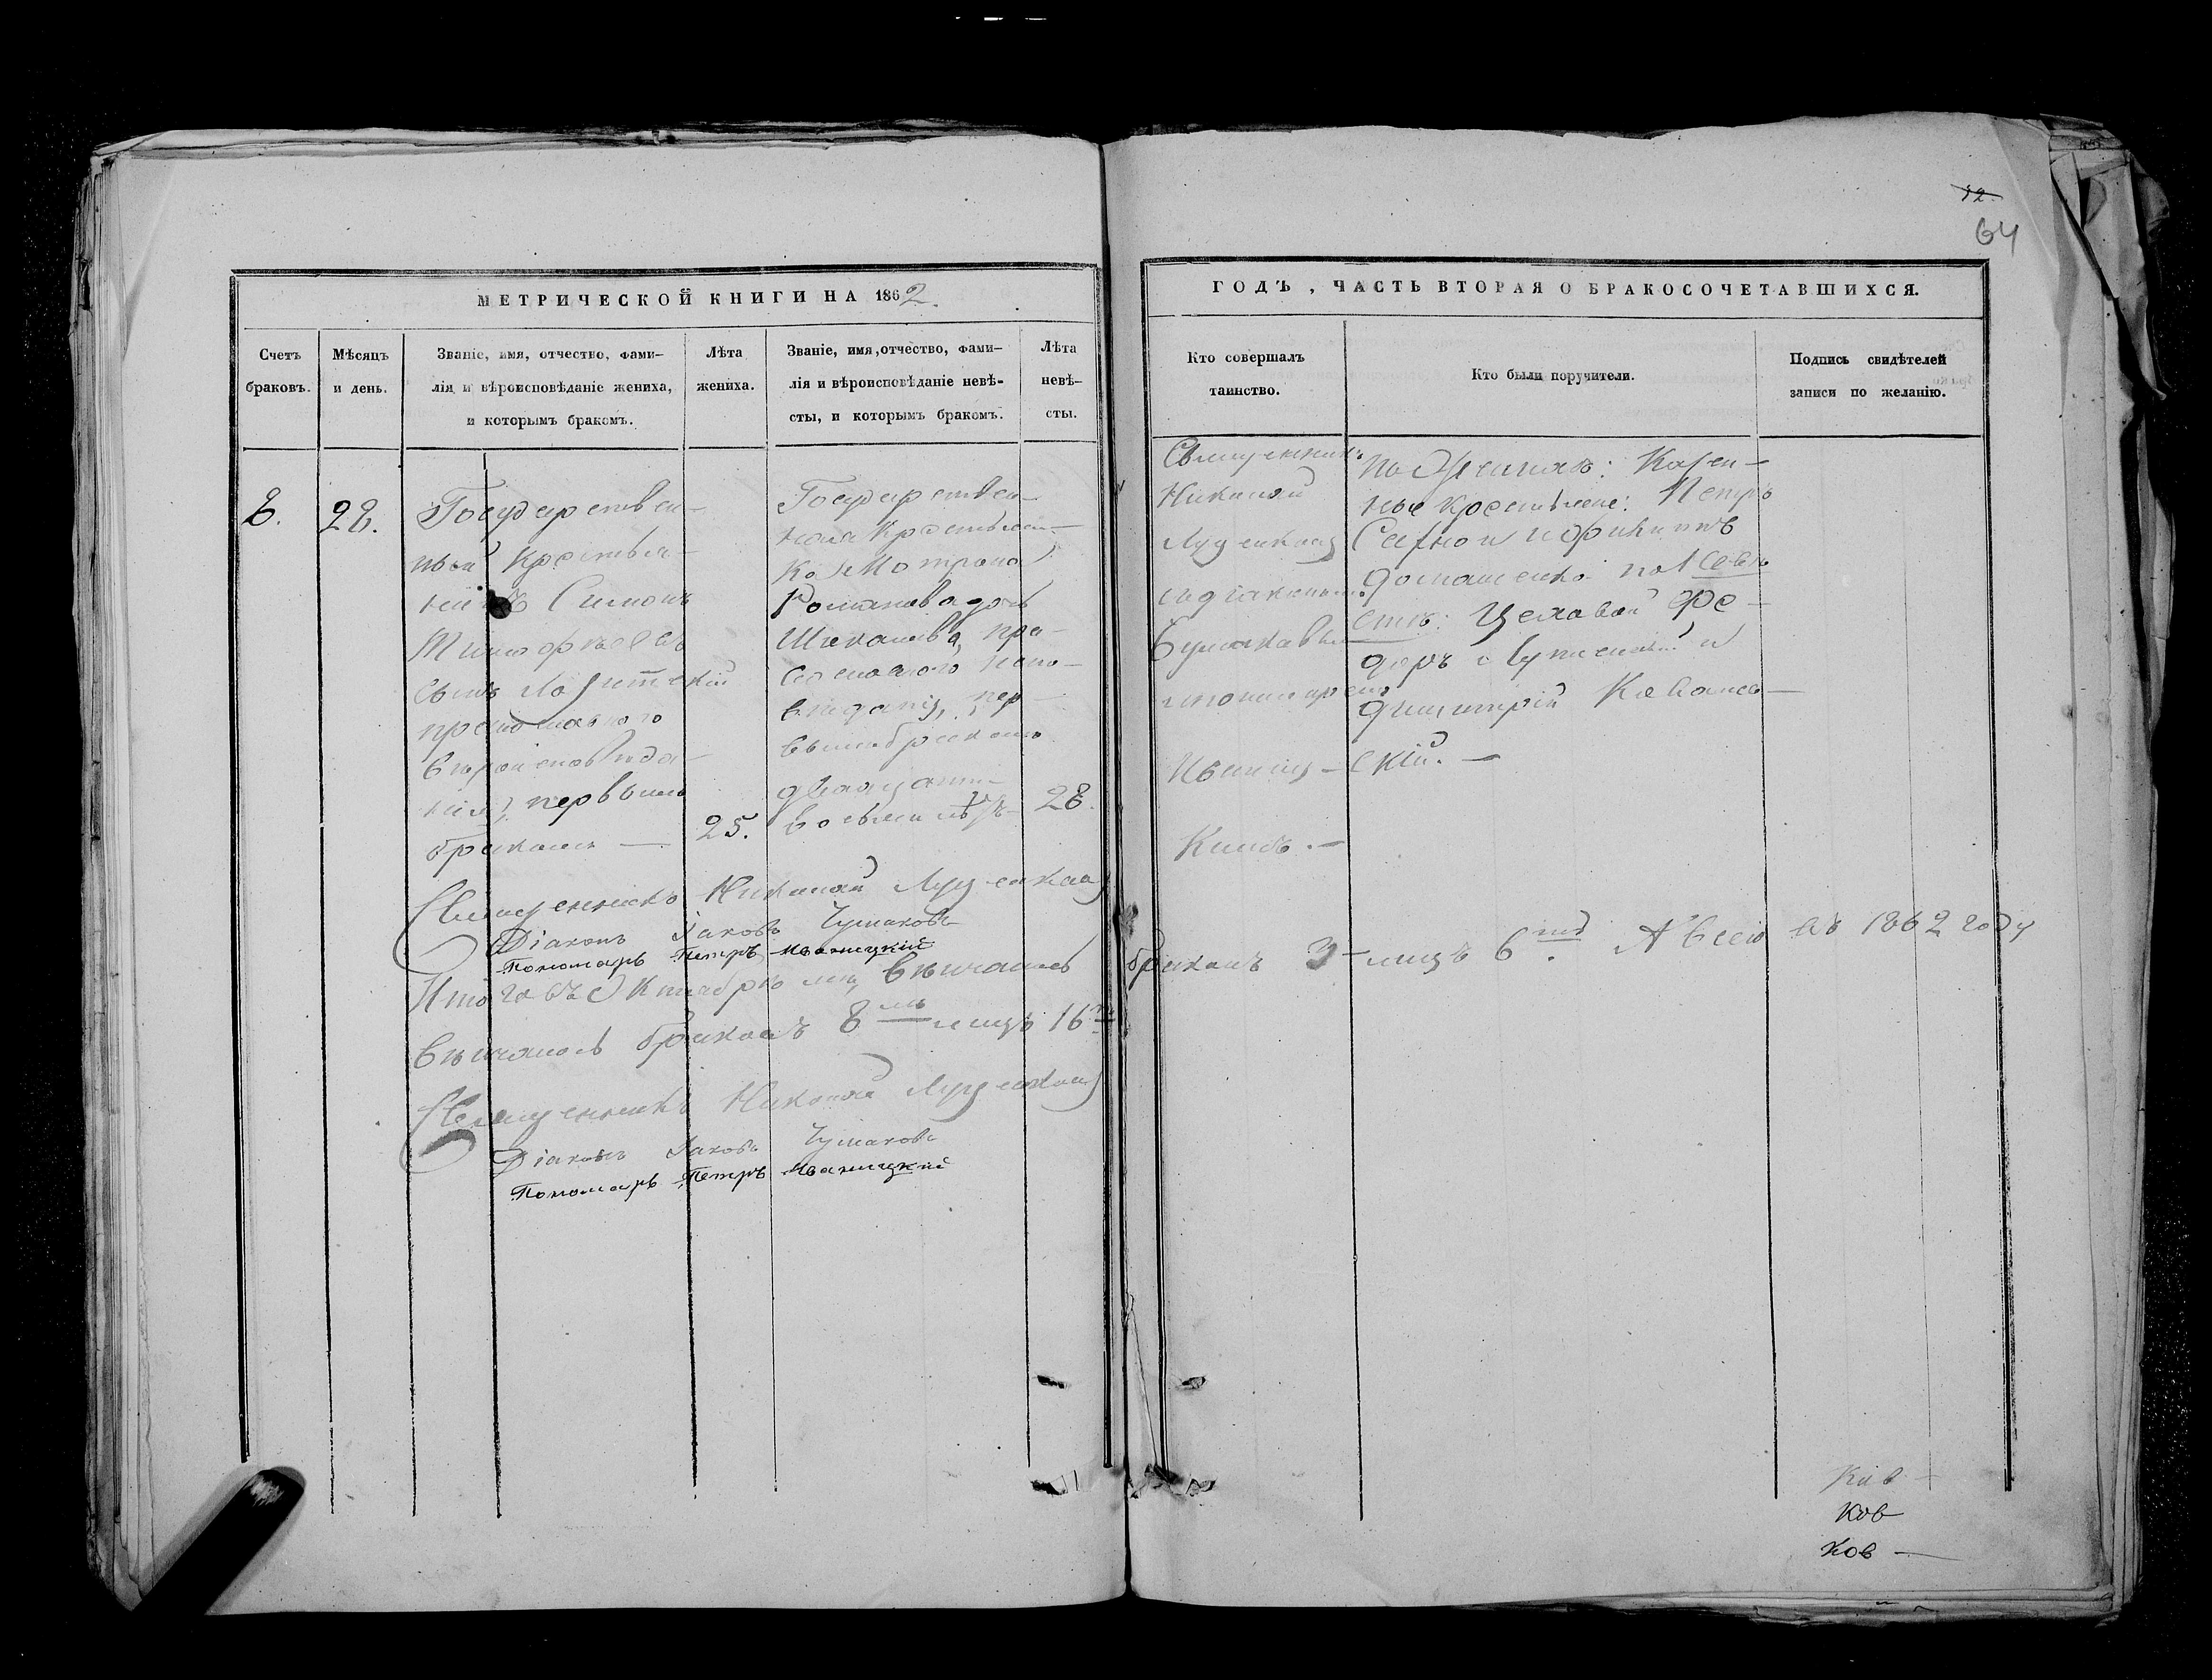 12.
64
МЕТРИЧЕСКОЙ КНИГИ НА 1862.
ГОДЪ, ЧАСТЬ ВТОРАЯ О БРАКОСОЧЕТАВШИХСЯ.
Счетъ
браковъ.
Мѣсяцъ
и день.
Званіе, имя, отчество, фами-
лія и вѣроисповѣданіе жениха,
и которымъ бракомъ.
Лѣта
жениха.
Званіе, имя, отчество, фами-
лія и вѣроисповѣданіе невѣ-
сты, и которымъ бракомъ.
Лѣта
невѣ-
сты.
Кто совершалъ
таинство.
Кто были поручители.
Подпись свидѣтелей
записи по желанію.
8.
28.
Государствен-
ный крестья-
нинъ Симонъ
Тимофѣевъ
сынъ
православнаго
вѣроисповѣда-
нія, первымъ
бракомъ —
25.
Государствен-
ная крестьян-
ка Матрона
Романова дочь
Шикалова, пра-
вославнаго испо-
вѣданія, пер-
вымъ бракомъ
двадцати
восьми лѣтъ
28.
Священникъ
Николай
съ діакономъ
Чумаковымъ
и пономаремъ
Иваниц-
кимъ. —
по женихѣ: Казен-
ные крестьяне: Петръ
по невѣ-
стѣ: Цеховой Ѳе-
доръ и
Димитрій Кованев-
скій. —
Священникъ Николай
Діаконъ Іаковъ Чумаковъ
Пономарь Петръ Иваницкій
Итого въ Октябрѣ мцѣ вѣнчалось
бракомъ 3 — лицъ 6. А всего въ 1862 году
вѣнчалось бракомъ 8 лицъ 16
Священникъ Николай
Діаконъ Іаковъ Чумаковъ
Пономарь Петръ Иваницкій
Ков —
Ков
Ков —